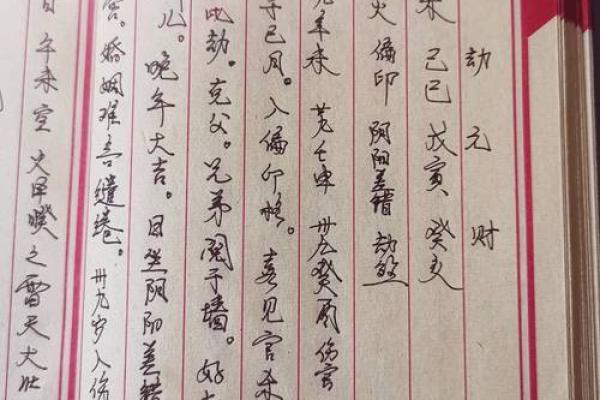 劫 元 财
未 己巳 戊寅 癸亥
火 偏印 阴阳差错 劫煞
九辛未 艽壬申 卅九癸酉伤官
于巳月。入偏印格。喜见官杀
此劫。克父。兄弟阋于墙。好
儿。晚年大吉。日坐阴阳差错
宫。婚姻难言缱绻。卅九岁入伤
日 午未空 火甲睽之雷天大壮